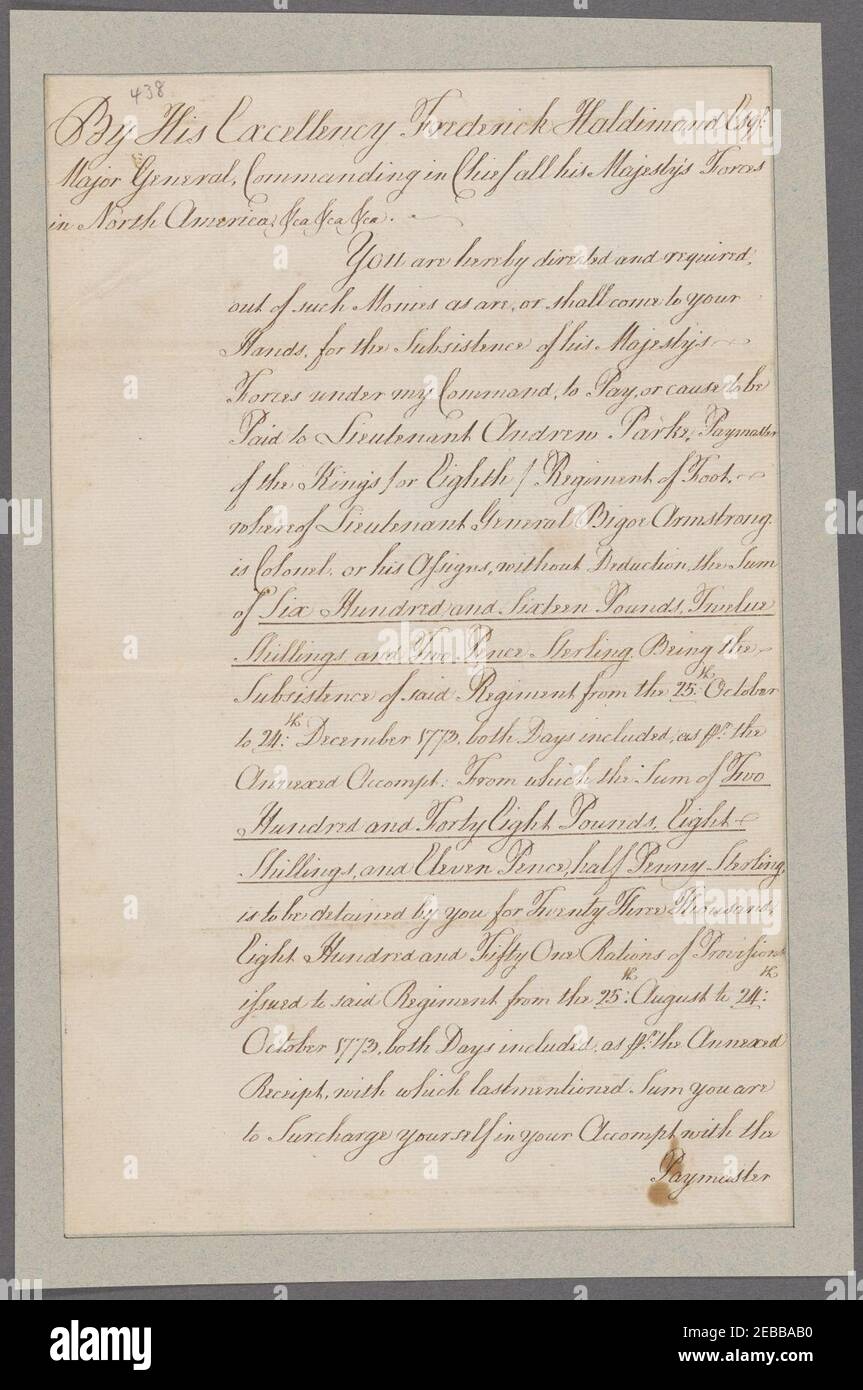 438
By His Excellency Frederick Haldimand Esqr.
Major General, Commanding in Chief all his Majesty's Forces
in North America, &ca &ca &ca.
You are hereby directed and required,
out of such Monies as are, or shall come to your
Hands, for the Subsistence of his Majesty's
Forces under my Command, to Pay, or cause to be
Paid to Lieutenant Andrew Parke, Paymaster
of the Kings / or Eighth / Regiment of Foot,
whereof Lieutenant General Bigoe Armstrong
is Colonel, or his Assigns, without Deduction, the Sum
of Six Hundred and Sixteen Pounds, Twelve
Shillings and Two Pence Sterling. Being the
Subsistence of said Regiment from the 25th October
to 24th December 1773, both Days included, as pr. the
Annexed Accompt: From which the Sum of Two
Hundred and Forty Eight Pounds, Eight
Shillings, and Eleven Pence, half Penny Sterling,
is to be detained by you for Twenty Three Thousand,
Eight Hundred and Fifty One Rations of Provisions
issued to said Regiment from the 25th August to 24th
October 1773, both Days included, as pr. the Annexed
Receipt, with which last mentioned Sum you are
to Surcharge yourself in your Accompt with the
Paymaster
alamy
Image ID: 2EBBAB0
www.alamy.com